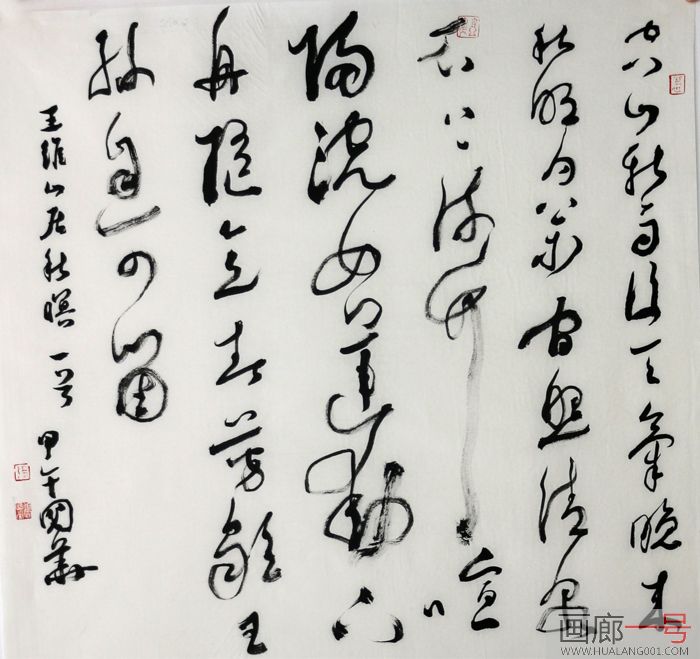 空山新雨後天氣晚来
秋明月松间照清泉
石上流竹喧
归浣女蓮動下
舟随意春芳歇王
孫自可留
王維山居秋暝一首 甲午國華
画廊一号
WWW.HUALANG001.COM